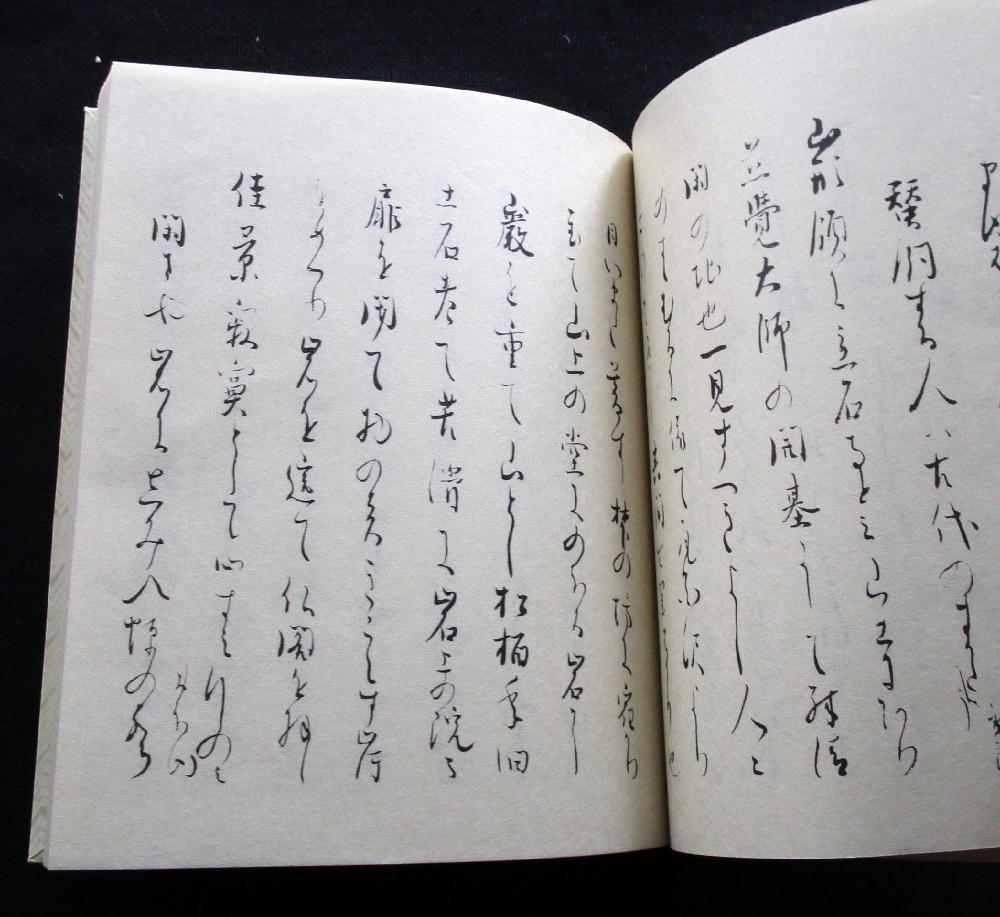 蚕飼する人ハ古代のすかた
山形領に立石寺と云山寺あり
慈覺大師の開基にして殊清
閑の地也一見すへきよし人々
のすゝむるに依て尾花沢より
其間七里はかり也
日いまた暮す梺の坊に宿かり
置て山上の堂にのほる岩に
巖を重て山とし松柏年旧
土石老て苔滑に岩上の院々
扉を閉て物の音きこえす岸
をめくり岩を這て仏閣を拝し
佳景寂寞として心すみ行のみ
おほゆ
閑さや岩にしみ入蝉の声